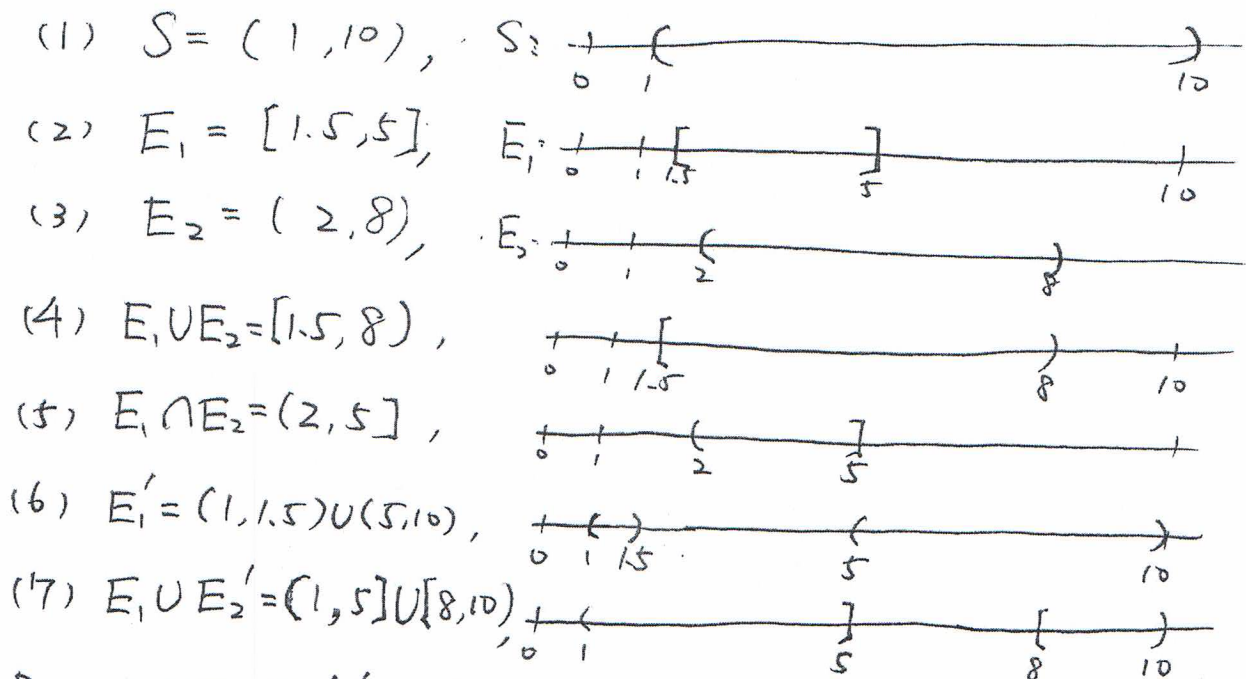 (1) S = (1,10), S: 0 1 ( ) 10
(2) E₁ = [1.5,5], E₁: 0 1 [ 1.5 ] 5 10
(3) E₂ = (2,8), E₂: 0 1 ( 2 ) 8
(4) E₁∪E₂=[1.5,8), 0 1 [ 1.5 ) 8 10
(5) E₁∩E₂=(2,5], 0 1 ( 2 ] 5
(6) E₁′=(1,1.5)∪(5,10), 0 ( 1 ) 1.5 ( 5 ) 10
(7) E₁∪E₂′=(1,5]∪[8,10), 0 ( 1 ] 5 [ 8 ) 10